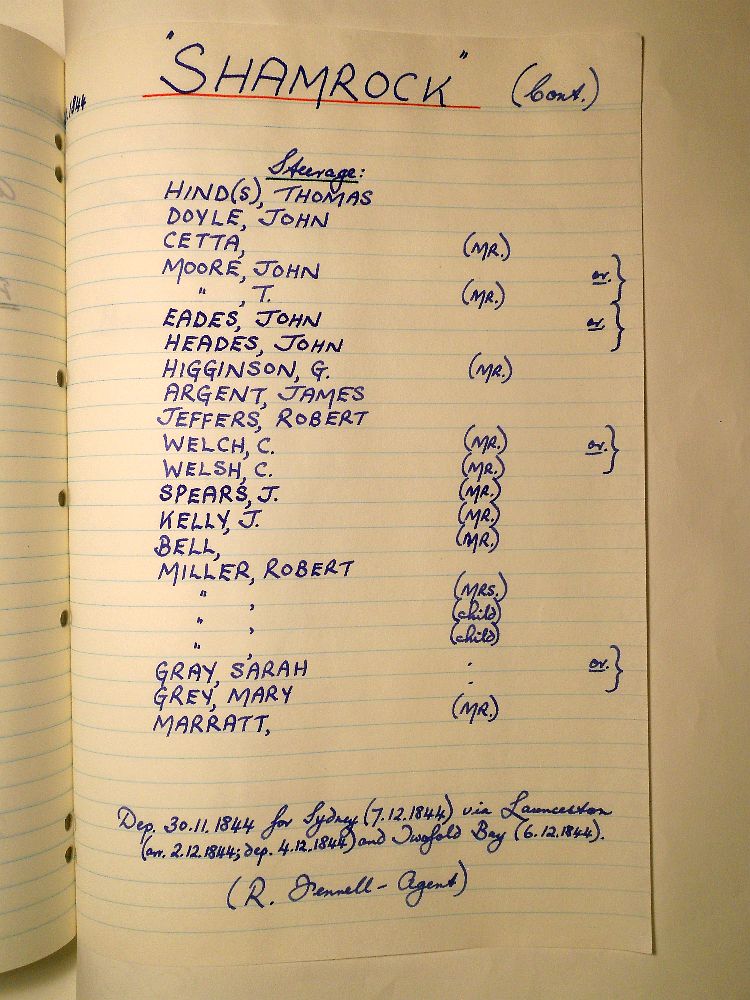 "SHAMROCK" (Cont.)
.1844
Steerage:
HIND(S), THOMAS
DOYLE, JOHN
CETTA, (MR.)
MOORE, JOHN or. }
" , T. (MR.)
EADES, JOHN or. }
HEADES, JOHN
HIGGINSON, G. (MR.)
ARGENT, JAMES
JEFFERS, ROBERT
WELCH, C. (MR.) or. }
WELSH, C. (MR.)
SPEARS, J. (MR.)
KELLY, J. (MR.)
BELL, (MR.)
MILLER, ROBERT
" , (MRS.)
" , (child)
" , (child)
GRAY, SARAH : or. }
GREY, MARY
MARRATT, (MR.)
Dep. 30.11.1844 for Sydney (7.12.1844) via Launceston
(arr. 2.12.1844; dep. 4.12.1844) and Twofold Bay (6.12.1844).
(R. Fennell - Agent)